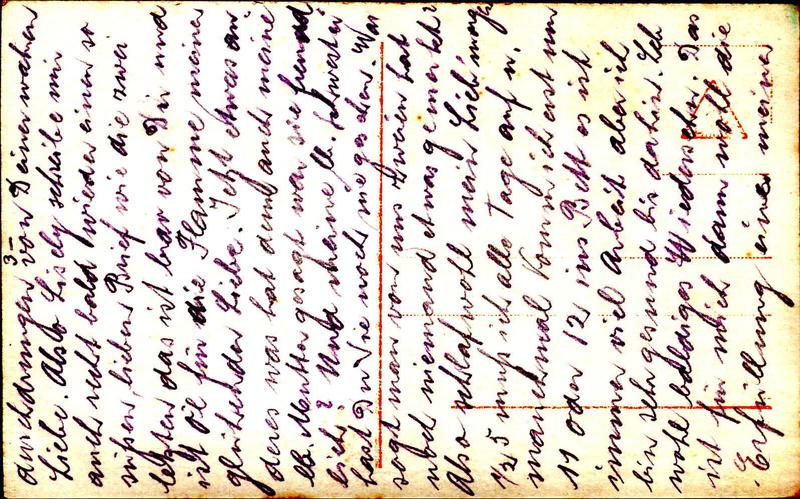 3-
durchdrungen von Deiner wahren
Liebe. Also Liesly schreibe mir
auch recht bald wieder einen so
süßen, lieben Brief wie die zwei
letzten das ist war von Dir und
ist Öl für die Flamme meiner
glühender Liebe. Jetzt etwas an
deres was hat denn auch meine
lb. Mutter gesagt war sie freund
lich? Und meine lb. Schwester
hast Du Sie noch nie gesehen. Was
sagt man von uns zweien hat
niemand etwas gemerkt?
Also schlaf wohl mein Lieb
1/2 5 muß ich alle Tage auf u.
manchmal komm ich erst um
11 oder 12 ins Bett es ist
immer viel Arbeit aber ich
bin sehr gesund bis dahin. Ich
wohl baldiges Wiedersehen. Das
ist für mich dann wohl die
Erfüllung einer meiner